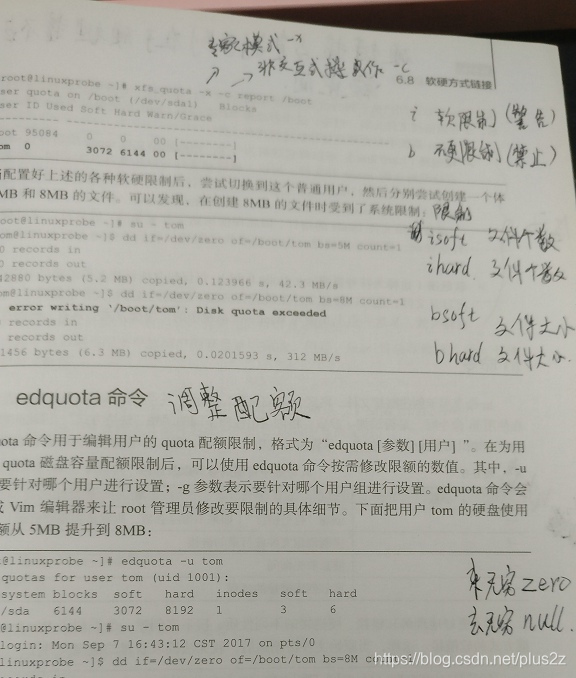 专家模式 -x
→非交互式操作 -c
6.8 软硬方式链接
root@linuxprobe ~]# xfs_quota -x -c report /boot
ser quota on /boot (/dev/sda1) Blocks
ser ID Used Soft Hard Warn/Grace
i 软限制 (警告)
oot 95084 0 0 00 [--------]
om 0 3072 6144 00 [--------]
b 硬限制 (禁止)
配置好上述的各种软硬限制后,尝试切换到这个普通用户,然后分别尝试创建一个体
MB 和 8MB 的文件。可以发现,在创建 8MB 的文件时受到了系统限制:
限制
root@linuxprobe ~]# su - tom
isoft 文件个数
om@linuxprobe ~]$ dd if=/dev/zero of=/boot/tom bs=5M count=1
0 records in
ihard 文件个数
0 records out
42880 bytes (5.2 MB) copied, 0.123966 s, 42.3 MB/s
om@linuxprobe ~]$ dd if=/dev/zero of=/boot/tom bs=8M count=1
bsoft 文件大小
error writing '/boot/tom': Disk quota exceeded
records in
records out
bhard 文件大小.
1456 bytes (6.3 MB) copied, 0.0201593 s, 312 MB/s
edquota 命令 调整配额
uota 命令用于编辑用户的 quota 配额限制,格式为“edquota [参数] [用户] ”。在为用
quota 磁盘容量配额限制后,可以使用 edquota 命令按需修改限额的数值。其中,-u
要针对哪个用户进行设置;-g 参数表示要针对哪个用户组进行设置。edquota 命令会
Vim 编辑器来让 root 管理员修改要限制的具体细节。下面把用户 tom 的硬盘使用
额从 5MB 提升到 8MB:
@linuxprobe ~]# edquota -u tom
quotas for user tom (uid 1001):
system blocks soft hard inodes soft hard
/sda 6144 3072 8192 1 3 6
来无穷 zero
@linuxprobe ~]# su - tom
去无穷 null.
login: Mon Sep 7 16:43:12 CST 2017 on pts/0
linuxprobe ~]$ dd if=/dev/zero of=/boot/tom bs=8M
https://blog.csdn.net/plus2z